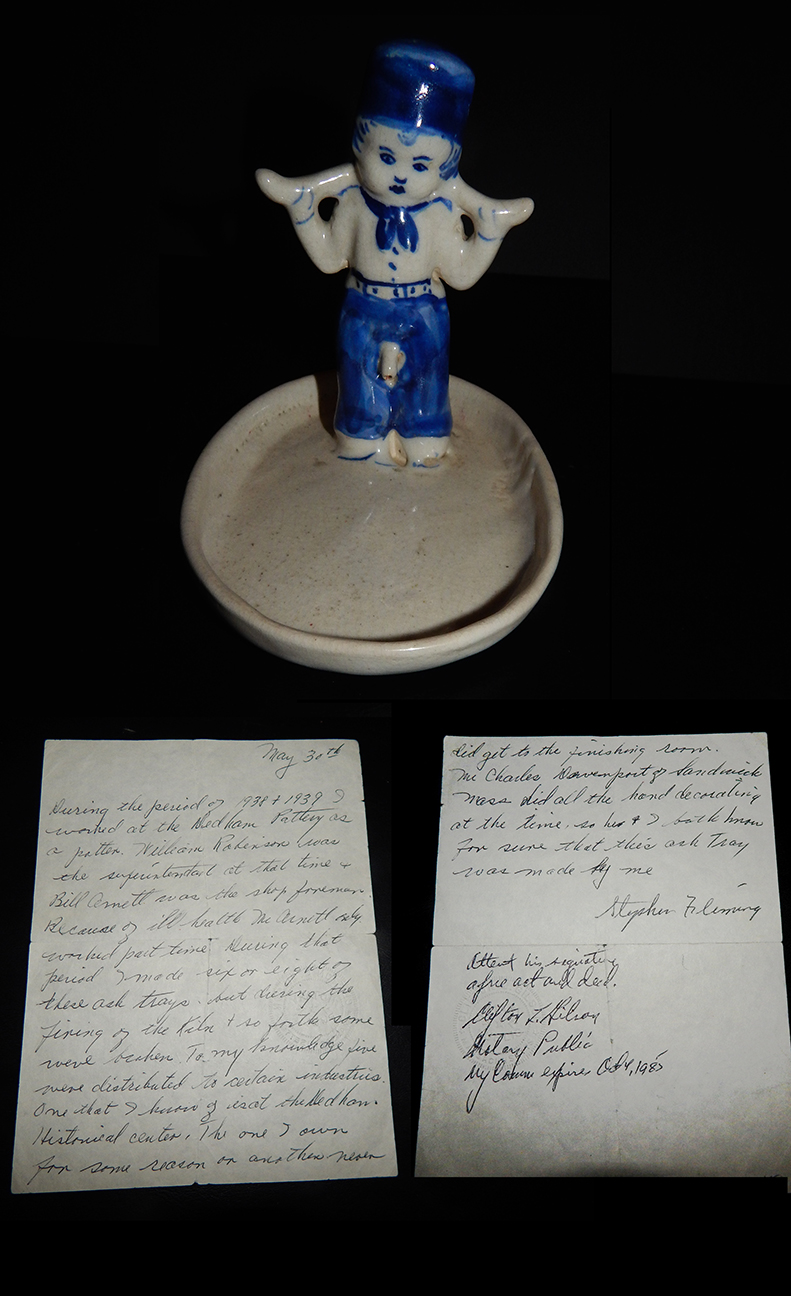 May 30th
During the period of 1938 + 1939 I
worked at the Dedham Pottery as
a potter. William Robinson was
the superintentant at that time +
Bill Arnett was the shop foreman.
Because of ill health Mc Arnett only
worked part time. During that
period I made six or eight of
these ash trays. but during the
firing of the Kiln + so forth some
were broken. To my knowledge five
were distributed to certain industries.
One that I know of is at the Dedham.
Historical center. The one I own
for some reason or another never
did get to the finishing room.
Mr Charles Davenport of Sandwick
Mass did all the hand decorating
at the time. so he + I both know
for sure that this ash Tray
was made by me
Stephen Fleming
Attest his signature
a free act and deed.
Clifton L.
Notary Public
My Comm expires Oct 4, 1985